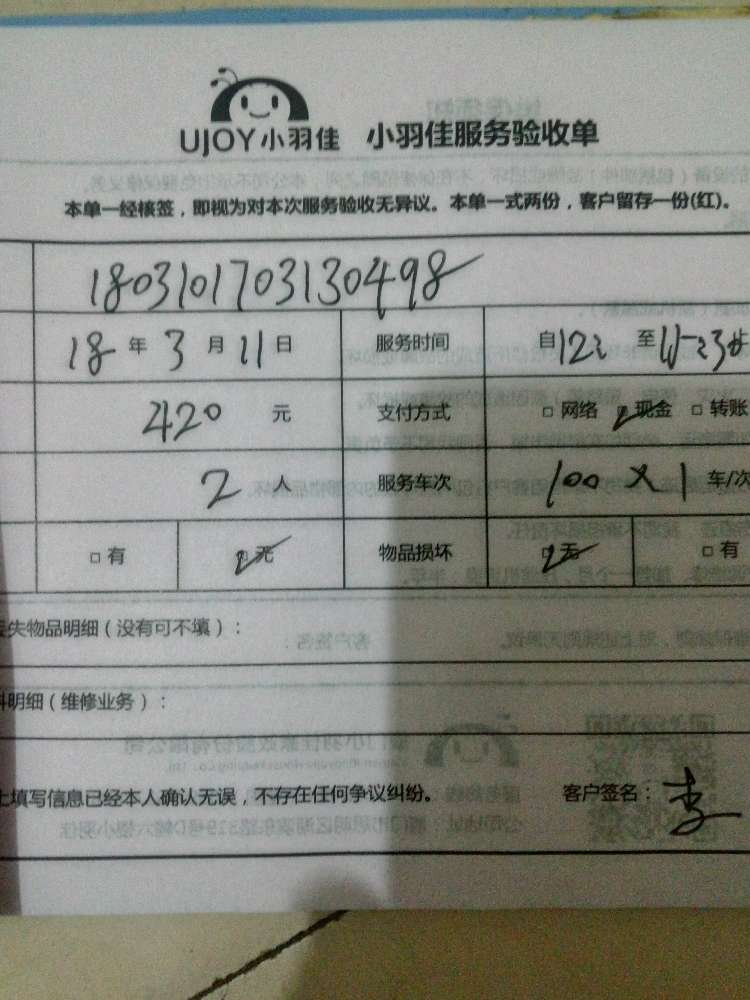 UJOY小羽佳 小羽佳服务验收单
本单一经核签，即视为对本次服务验收无异议。本单一式两份，客户留存一份(红)。
1803101703130498
18 年 3 月 11 日 服务时间 自12: 至
420 元 支付方式 □ 网络 □ 现金 □ 转账
2 人 服务车次 100 X 1 车/次
□ 有 □ 无 物品损坏 □ 无 □ 有
失物品明细（没有可不填）：
料明细（维修业务）：
上填写信息已经本人确认无误，不存在任何争议纠纷。 客户签名：李